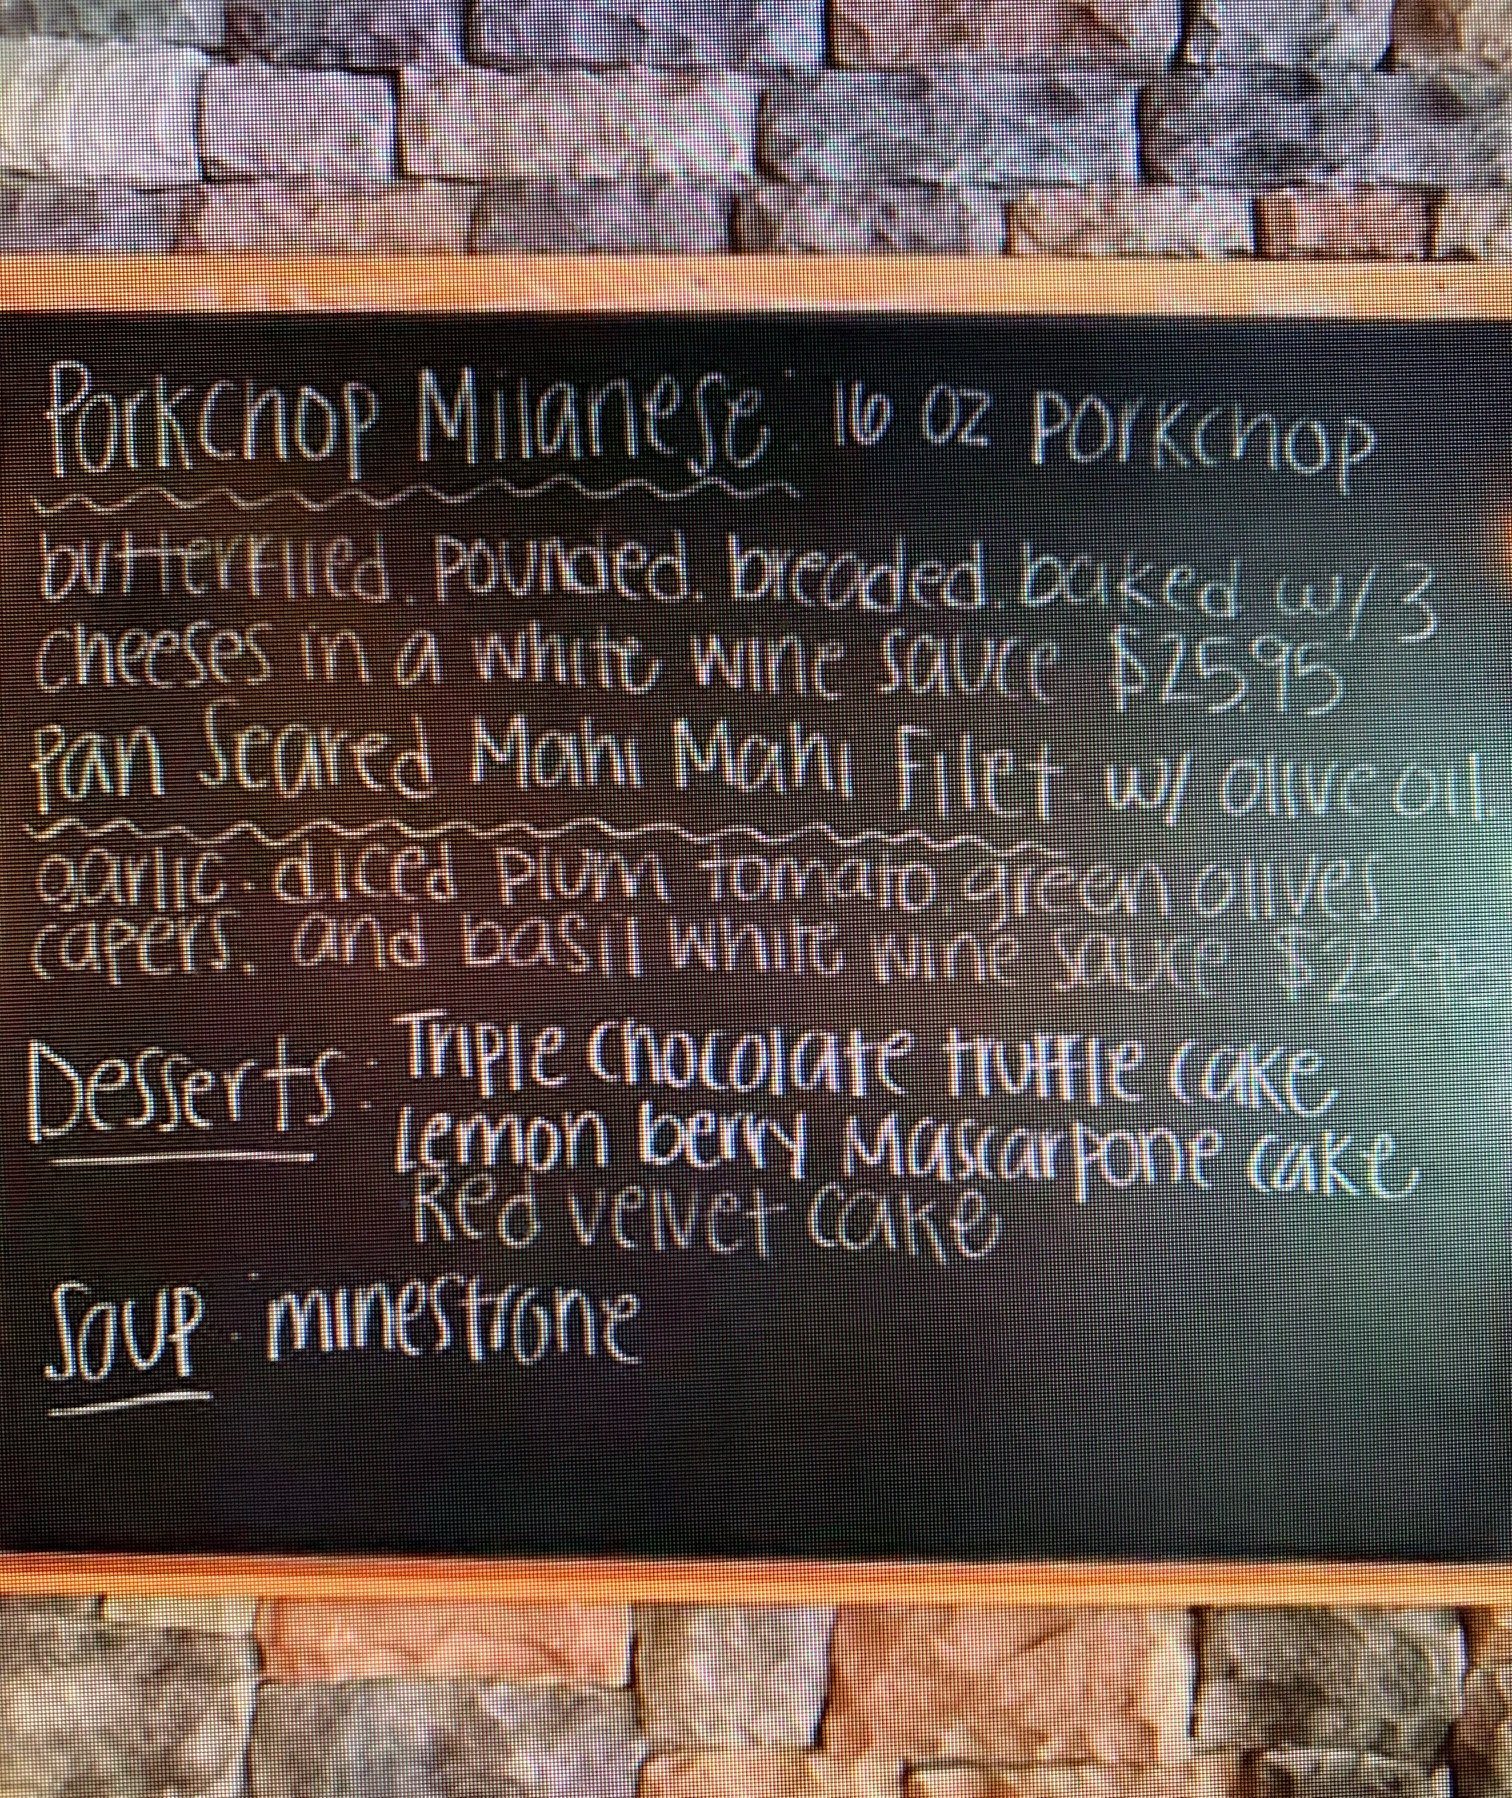 Porkchop Milanese: 16 oz porkchop
butterflied, pounded, breaded, baked w/ 3
cheeses in a white wine sauce $25.95
Pan Seared Mahi Mahi Filet w/ olive oil,
garlic, diced plum tomato, green olives
capers, and basil white wine sauce
Desserts: Triple chocolate truffle cake
Lemon berry Mascarpone cake
Red velvet cake
Soup: minestrone